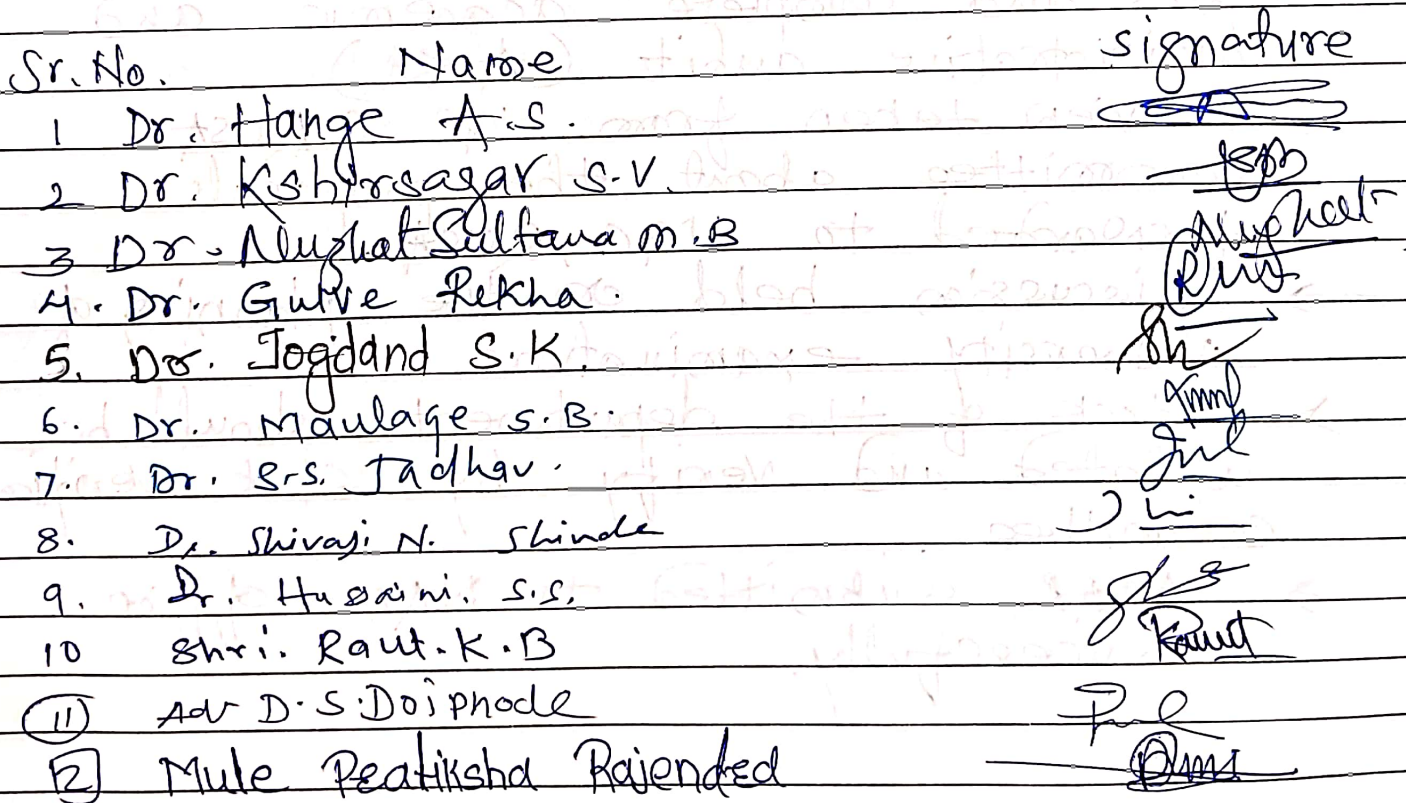 Sr. No. Name signature
1 Dr. Hange A.S.
2 Dr. Kshirsagar S.V.
3 Dr. Nuzhat Sultana M.B Nuzhat
4. Dr. Gutte Rekha.
5. Dr. Jogdand S.K.
6. Dr. Maulage S.B.
7. Dr. S.S. Jadhav.
8. Dr. Shivaji N. Shinde
9. Dr. Hussaini. S.S.
10 Shri. Raut. K.B Raut
11 Adv D.S. Doiphode
12 Mule Peatiksha Rajended